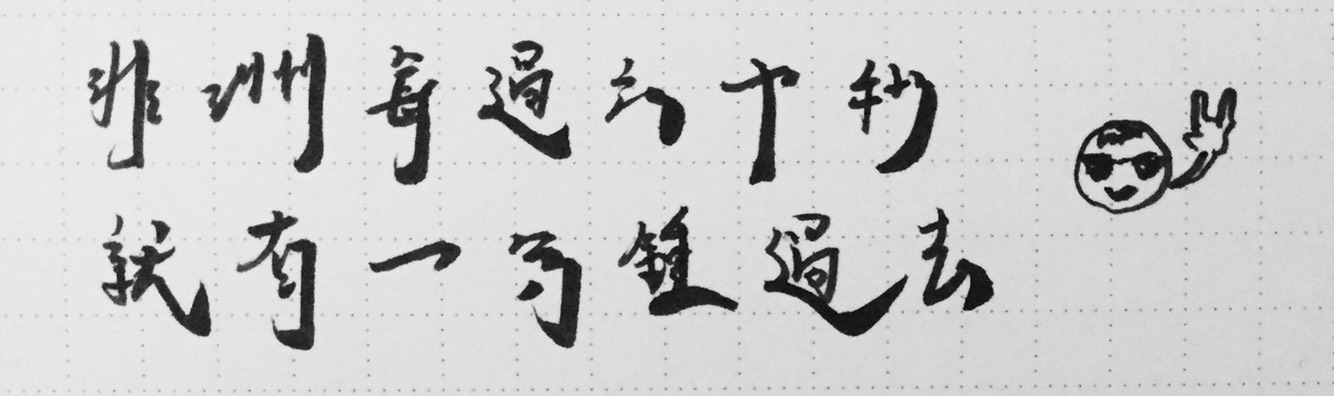 非洲每過六十秒
就有一分鐘過去